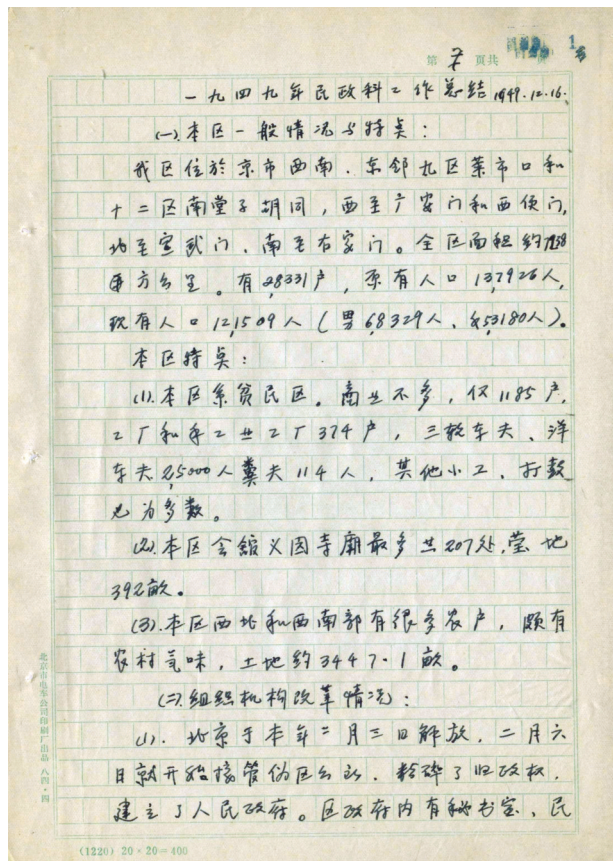 第7页共 页 1
一九四九年民政科工作总结 1949.12.16.
(一).本区一般情况与特点：
我区位於京市西南、东邻九区菜市口和
十二区南堂子胡同，西至广安门和西便门，
北至宣武门、南至右安门。全区面积约7.938
平方公里。有28331户，原有人口137926人，
现有人口121509人（男68329人、女53180人）。
本区特点：
(1).本区系贫民区。商业不多，仅1185户，
工厂和手工业工厂374户，三轮车夫、洋
车夫25000人粪夫114人，其他小工、打鼓
也为多数。
(2).本区会馆义园寺庙最多共207处，茔地
392亩。
(3).本区西北和西南部有很多农户，颇有
农村气味，土地约3447.1亩。
(二).组织机构改革情况：
(1).北京于本年二月三日解放，二月六
日就开始接管伪区公所、粉碎了旧政权，
建立了人民政府。区政府内有秘书室、民
北京市电车公司印刷厂出品 八四·四
(1220) 20×20=400